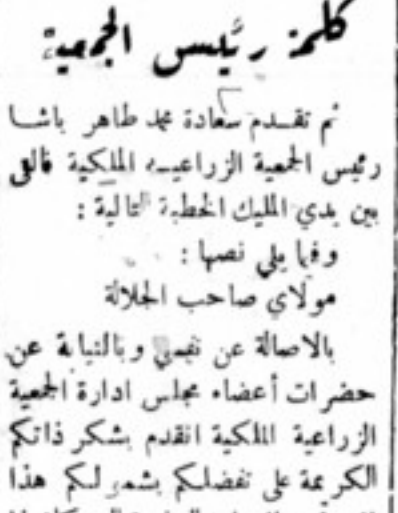 كلمة رئيس الجمعية
ثم تقدم سعادة محمد طاهر باشا
رئيس الجمعية الزراعية الملكية فألقى
بين يدي المليك الخطبة التالية :
وفيما يلي نصها :
مولاي صاحب الجلالة
بالاصالة عن نفسي وبالنيابة عن
حضرات أعضاء مجلس ادارة الجمعية
الزراعية الملكية اتقدم بشكر ذاتكم
الكريمة على تفضلكم بشمولكم هذا